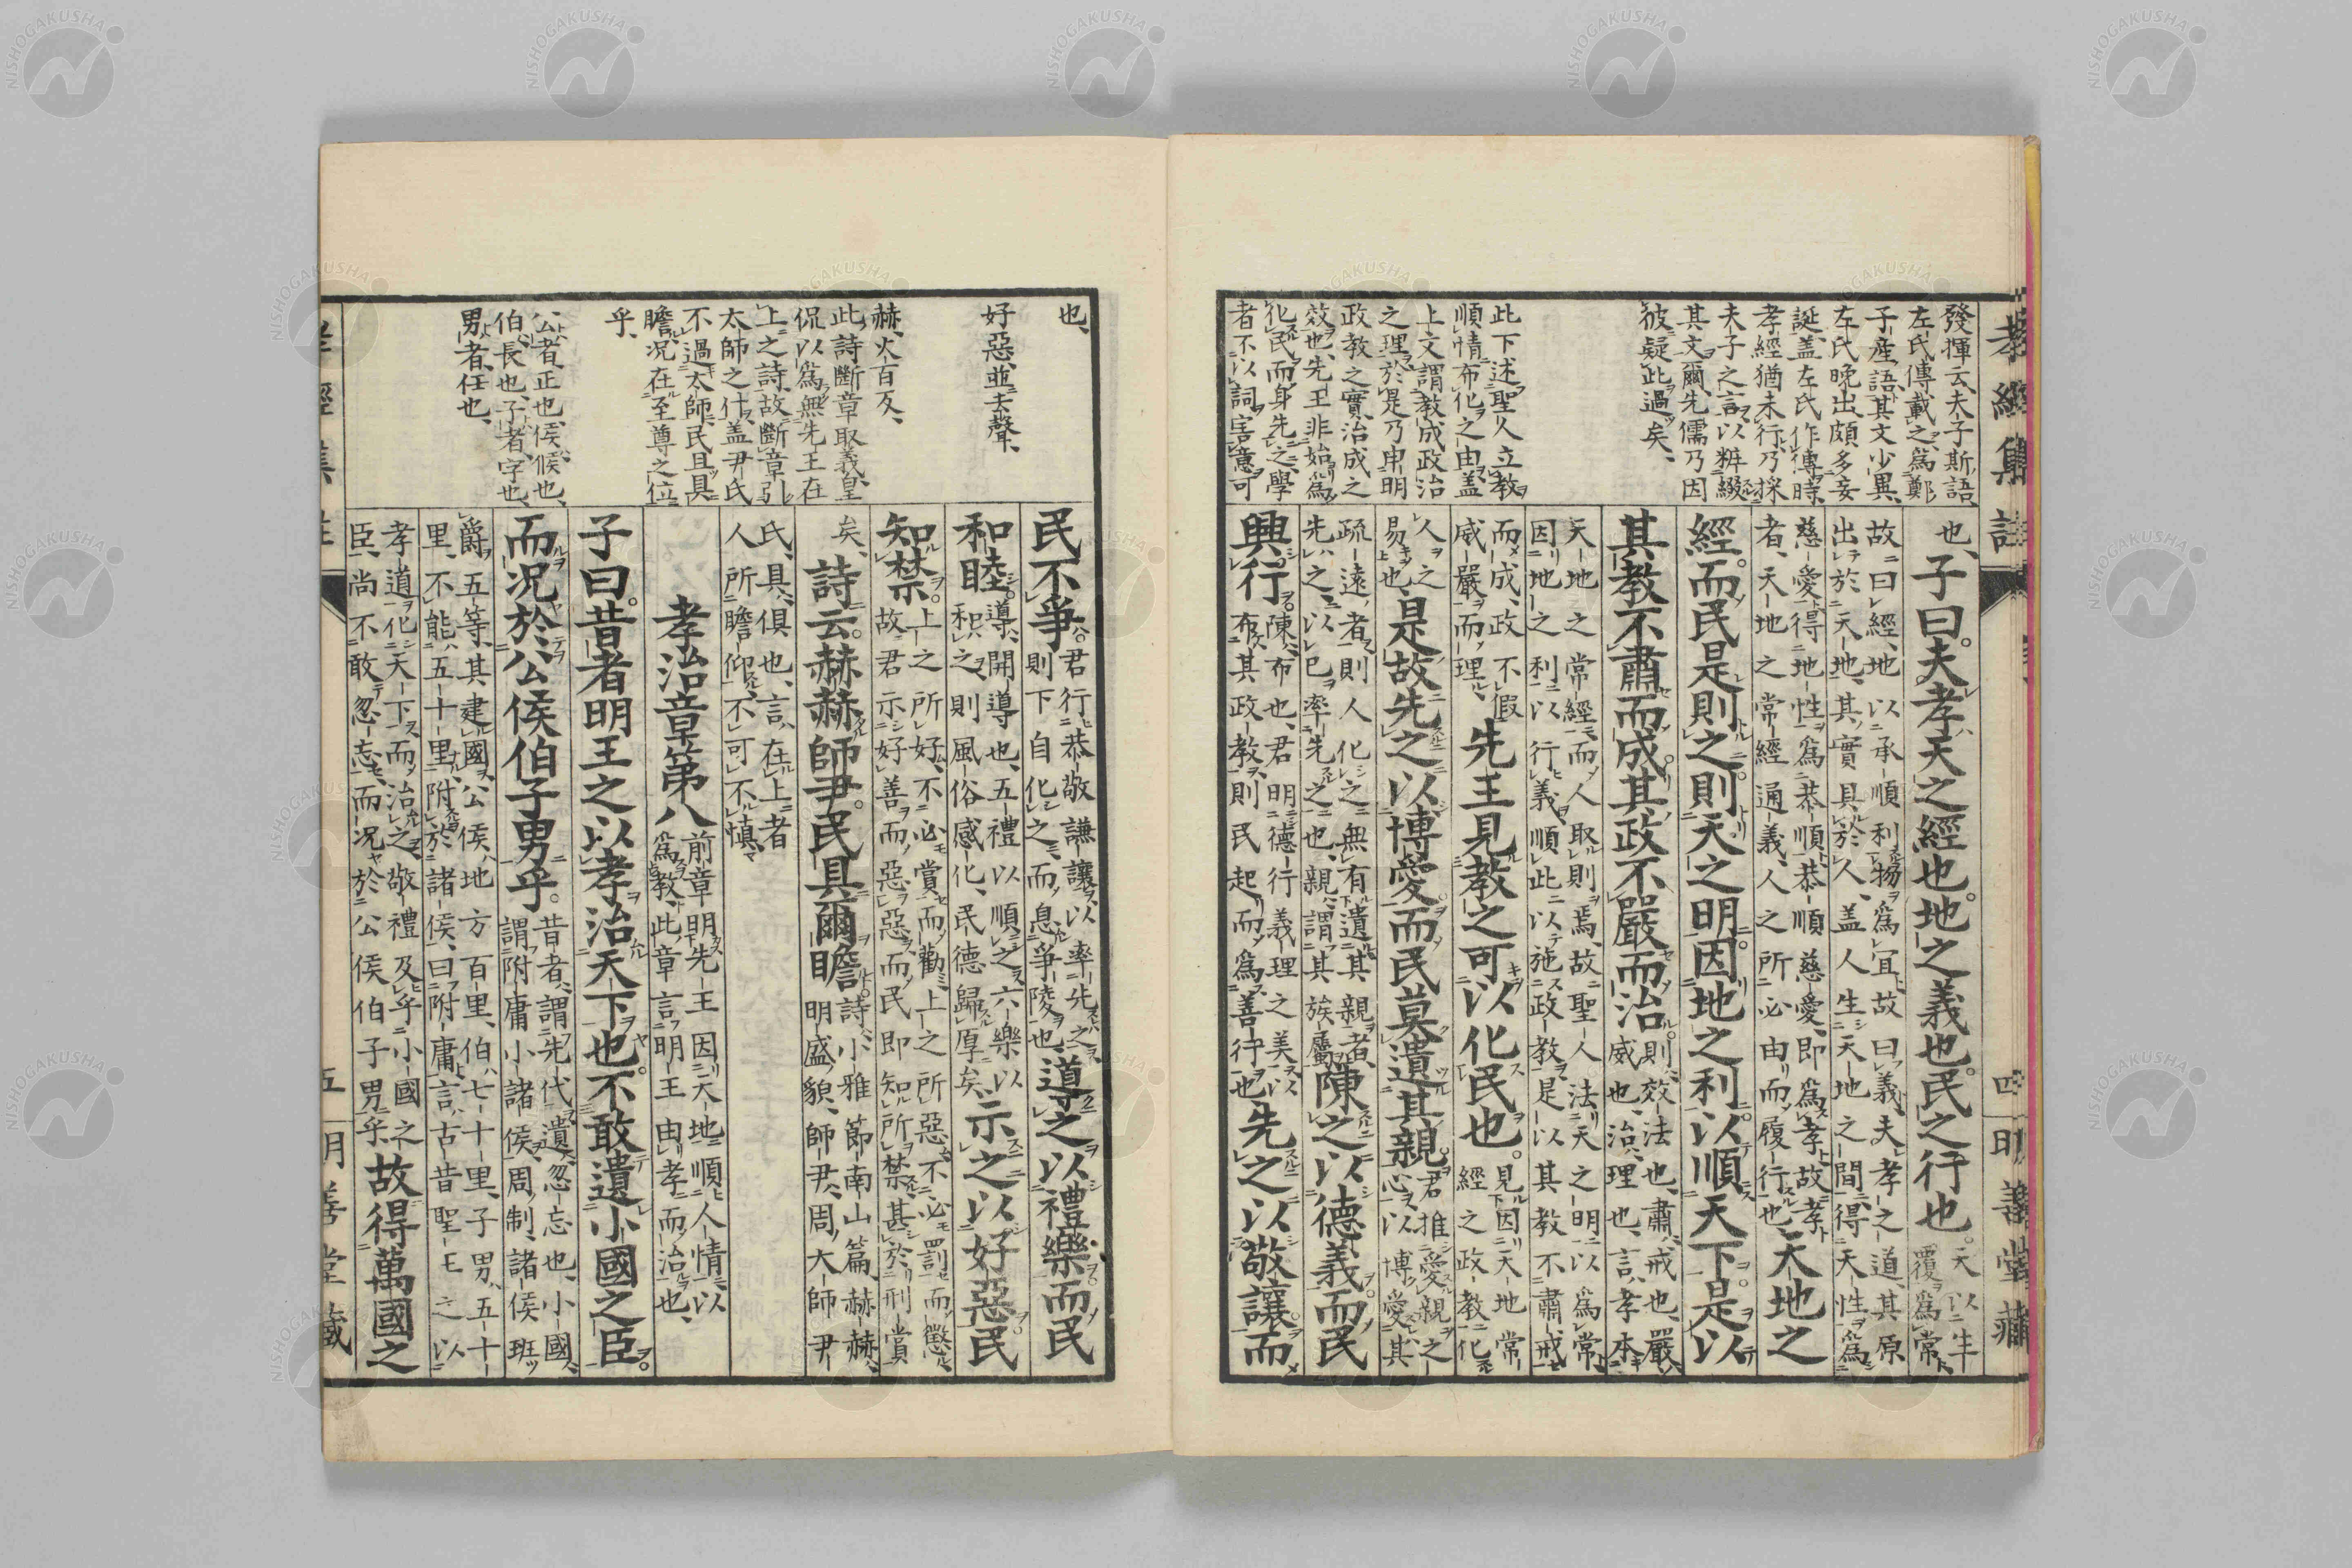 孝經集註
四
明善堂藏
發揮云、夫子斯語、
左氏傳、載之、爲鄭
子產語、其文少異、
左氏晚出、頗多妄
誕、蓋左氏作傳時、
孝經猶未行、乃採
夫子之言、以粹綴
其文爾、先儒乃因
彼疑此過矣、
此下述聖人立教
順情布化之由、蓋
上文謂教成政治
之理、於是乃申明
政教之實、治成之
效也、先王非始爲
化民而身先之、學
者不以詞害意可
也、子曰。夫孝天之經也。地之義也。民之行也。天以生覆爲常、
故曰經、地以承順利物爲宜、故曰義、夫孝之道、其原
出於天地、其實具於人、蓋人生天地之間、得天性爲
慈愛、得地性爲恭順、恭順慈愛、即爲孝、故孝
者、天地之常經通義、人之所必由而履行也、天地之
經。而民是則之。則天之明。因地之利。以順天下。是以
其教不肅而成。其政不嚴而治。則效法也、肅、戒也、嚴、威也、治、理也、言、孝本
天地之常經、而人取則焉、故聖人法天之明、以爲常、
因地之利、以行義、順此以施政教、是以其教不肅戒
而成、政不假威嚴而理、先王見教之可以化民也。見因天地常經之政教化
人之易也、是故先之以博愛。而民莫遺其親。君推愛親之心、以博愛其
疏遠者、則人化之、無有遺其親者、陳之以德義。而民
先之、以己率先之也、親、謂其族屬
興行。陳、布也、君明德行義理之美、以布其政教、則民起而爲善行也、先之以敬讓。而
也、
好惡並去聲、
赫、火百反、
此詩斷章取義、皇
侃以爲無先王在
上之詩、故斷章引
太師之什、蓋尹氏
不過太師、民且具
瞻、况在至尊之位
乎、
公者、正也、侯、候也、
伯、長也、子者、字也、
男者、任也、
民不爭。君行恭敬謙讓、以率先之、則下自化之、而息爭陵也、導之以禮樂。而民
和睦。導、開導也、五禮以順之、六樂以和之、則風俗感化、民德歸厚矣、示之以好惡。民
知禁。上之所好、不必賞而勸、上之所惡、不必罰而懲、故君示好善而惡惡、而民即知所禁、甚於刑賞
矣、詩云。赫赫師尹。民具爾瞻。詩、小雅節南山篇、赫赫、明盛貌、師尹、周大師尹
氏、具、俱也、言、在上者
人所瞻仰、不可不慎、
孝治章第八 前章明先王因天地順人情以爲教、此章言明王由孝而治也、
子曰。昔者明王之以孝治天下也。不敢遺小國之臣。
而况於公侯伯子男乎。昔者、謂先代、遺、忽忘也、小國、謂附庸小諸侯、周制、諸侯班
爵五等、其建國、公侯、地方百里、伯、七十里、子男、五十
里、不能五十里、附於諸侯、曰附庸、言、古昔聖王之以
孝道化天下、而治之、敬禮及乎小國之
臣、尚不敢忽忘、而况於公侯伯子男乎、故得萬國之
孝經集註
五
明善堂藏
NISHOGAKUSHA